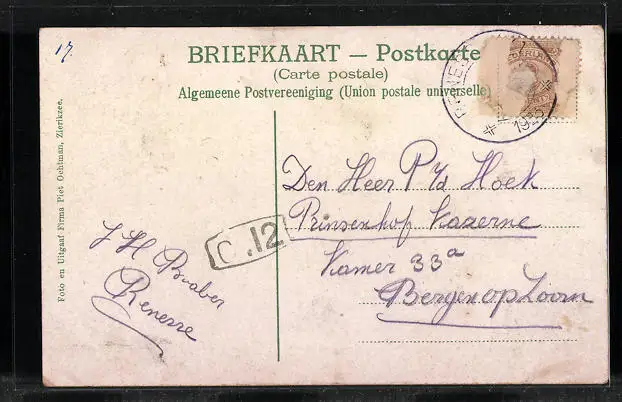 17.
BRIEFKAART — Postkarte
(Carte postale)
Algemeene Postvereeniging (Union postale universelle)
Foto en Uitgaaf Firma Piet Ochtman, Zierikzee.
Den Heer P v/d Hoek
Prinsenhof Kazerne
Kamer 33a
Bergen op Zoom
C.12
J H Braber
Renesse